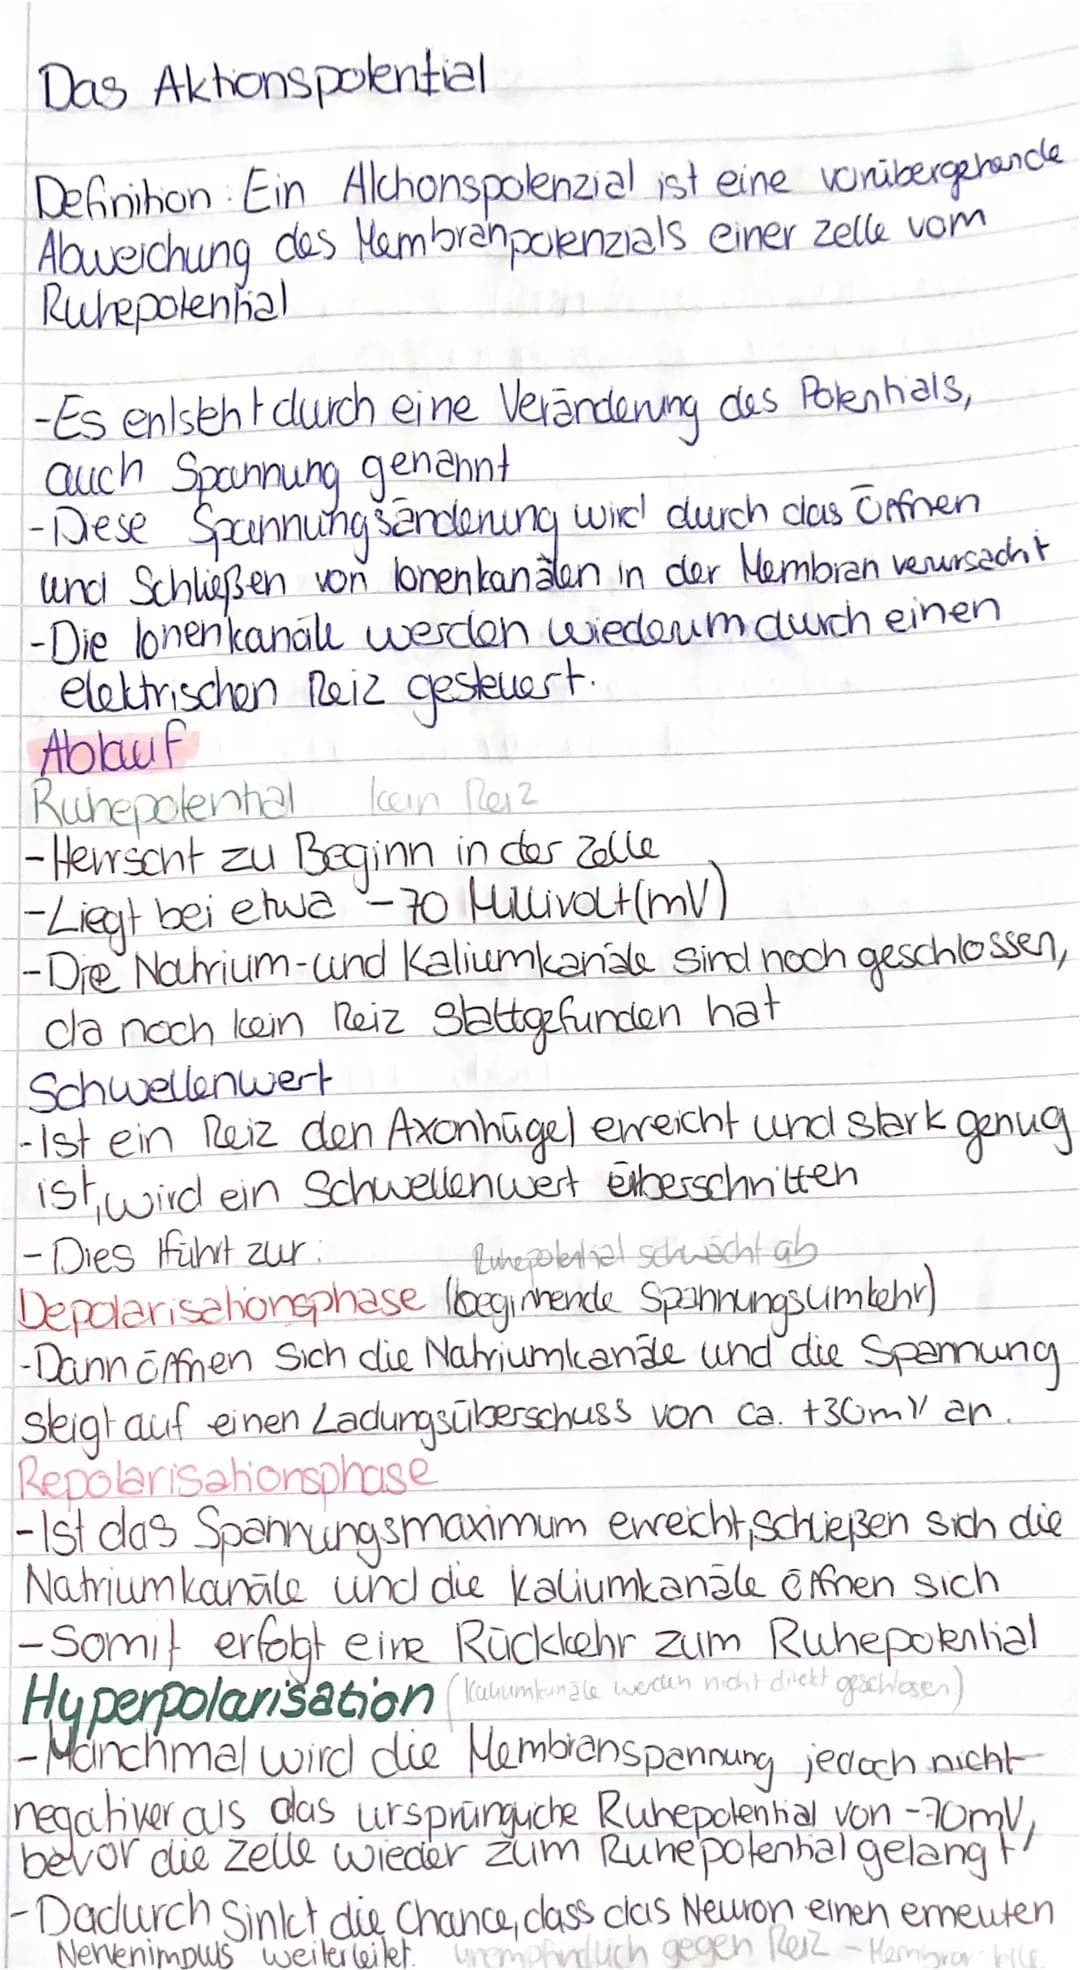 Das Aktionspotential
Definition: Ein Aktionspotenzial ist eine vorübergehende
Abweichung des Membranpotenzials einer Zelle vom
Ruhepotential
-Es entsteht durch eine Veränderung des Potentials,
auch Spannung genannt
-Diese Spannungsänderung wird durch das Öffnen
und Schließen von Ionenkanälen in der Membran verursacht
-Die Ionenkanäle werden wiederum durch einen
elektrischen Reiz gesteuert.
Ablauf
Ruhepotential kein Reiz
-Herrscht zu Beginn in der Zelle
-Liegt bei etwa -70 Millivolt (mV)
-Die Natrium-und Kaliumkanäle sind noch geschlossen,
da noch kein Reiz stattgefunden hat
Schwellenwert
-Ist ein Reiz den Axonhügel erreicht und stark genug
ist, wird ein Schwellenwert überschritten
-Dies führt zur: Ruhepotential schwächt ab
Depolarisationsphase (beginnende Spannungsumkehr)
-Dann öffnen sich die Natriumkanäle und die Spannung
steigt auf einen Ladungsüberschuss von ca. +30mV an.
Repolarisationsphase
-Ist das Spannungsmaximum erreicht, schließen sich die
Natriumkanäle und die Kaliumkanäle öffnen sich
-Somit erfolgt eine Rückkehr zum Ruhepotential
Hyperpolarisation (Kaliumkanäle werden nicht direkt geschlossen)
-Manchmal wird die Membranspannung jedoch nicht
negativer als das ursprüngliche Ruhepotential von -70mV,
bevor die Zelle wieder zum Ruhepotential gelangt
-Dadurch sinkt die Chance, dass das Neuron einen erneuten
Nervenimpuls weiterleitet. unempfindlich gegen Reiz -